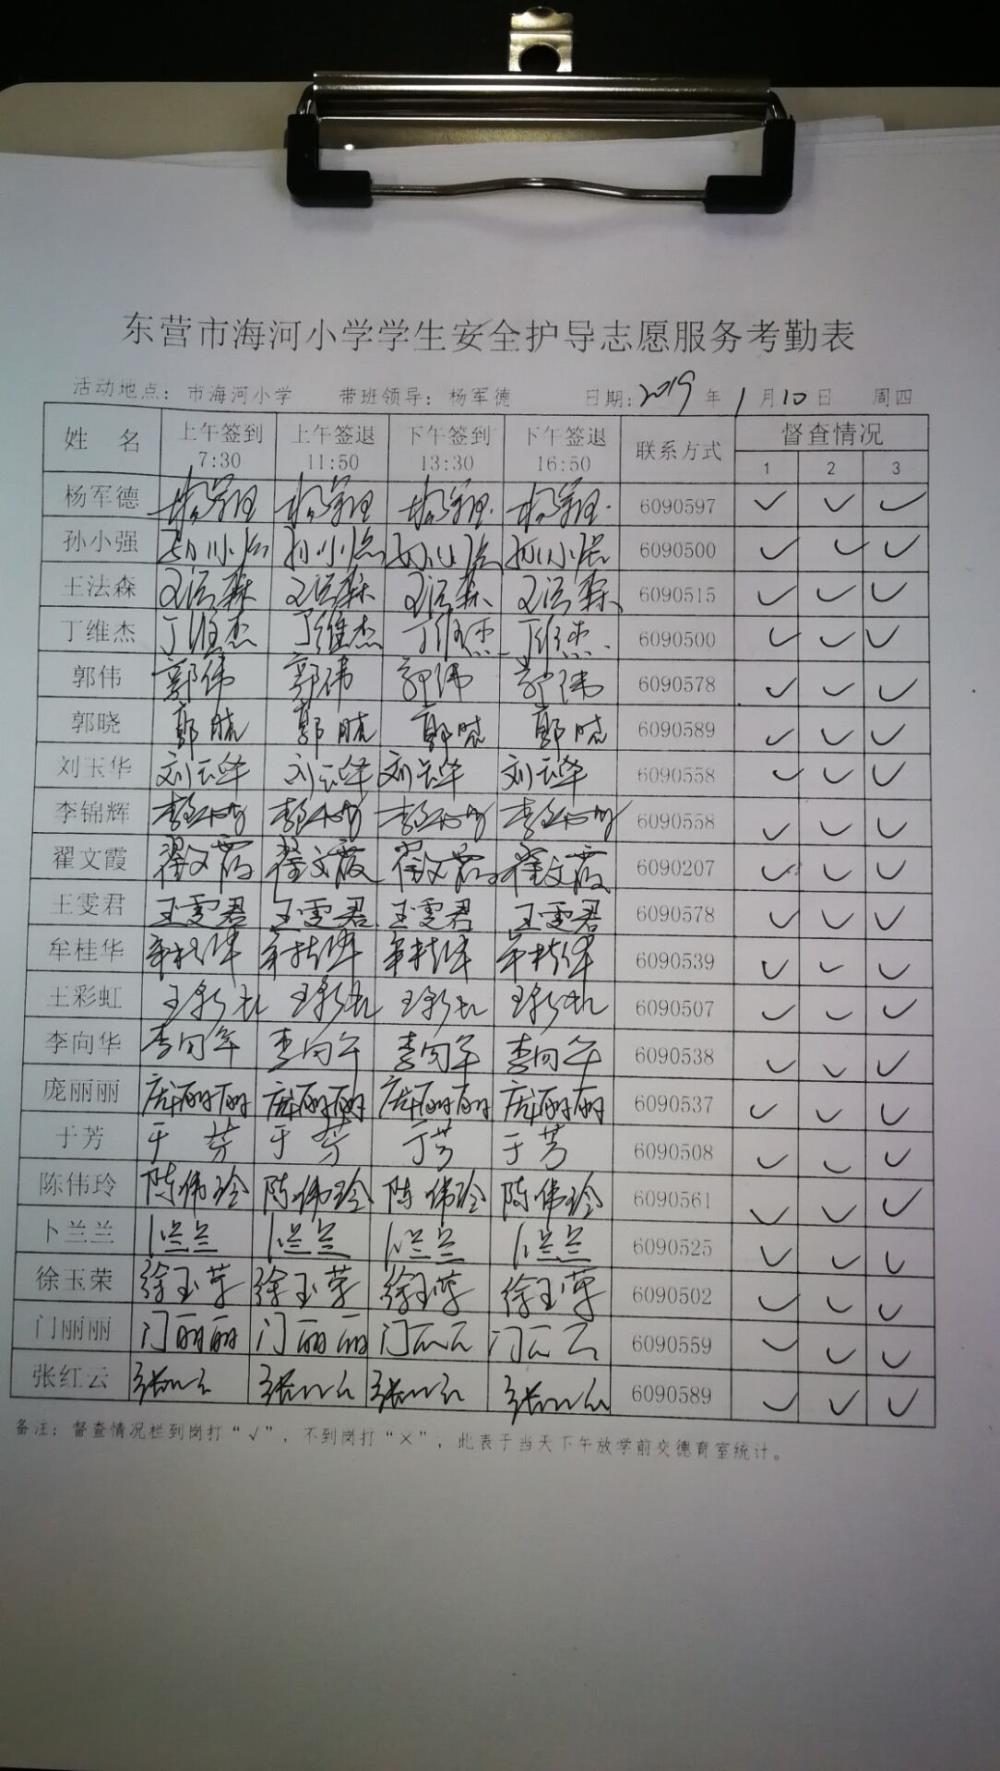 东营市海河小学学生安全护导志愿服务考勤表
活动地点：市海河小学 带班领导：杨军德 日期：2019年1月10日 周四
姓名 上午签到 7:30 上午签退 11:50 下午签到 13:30 下午签退 16:50 联系方式 督查情况 1 2 3
杨军德 杨军德 杨军德 杨军德 杨军德 6090597 ✓ ✓ ✓
孙小强 孙小强 孙小强 孙小强 孙小强 6090500 ✓ ✓ ✓
王法森 王法森 王法森 王法森 王法森 6090515 ✓ ✓ ✓
丁维杰 丁维杰 丁维杰 丁维杰 丁维杰 6090500 ✓ ✓ ✓
郭伟 郭伟 郭伟 郭伟 郭伟 6090578 ✓ ✓ ✓
郭晓 郭晓 郭晓 郭晓 郭晓 6090589 ✓ ✓ ✓
刘玉华 刘玉华 刘玉华 刘玉华 刘玉华 6090558 ✓ ✓ ✓
李锦辉 李锦辉 李锦辉 李锦辉 李锦辉 6090558 ✓ ✓ ✓
翟文霞 翟文霞 翟文霞 翟文霞 翟文霞 6090207 ✓ ✓ ✓
王雯君 王雯君 王雯君 王雯君 王雯君 6090578 ✓ ✓ ✓
牟桂华 牟桂华 牟桂华 牟桂华 牟桂华 6090539 ✓ ✓ ✓
王彩虹 王彩虹 王彩虹 王彩虹 王彩虹 6090507 ✓ ✓ ✓
李向华 李向华 李向华 李向华 李向华 6090538 ✓ ✓ ✓
庞丽丽 庞丽丽 庞丽丽 庞丽丽 庞丽丽 6090537 ✓ ✓ ✓
于芳 于芳 于芳 于芳 于芳 6090508 ✓ ✓ ✓
陈伟玲 陈伟玲 陈伟玲 陈伟玲 陈伟玲 6090561 ✓ ✓ ✓
卜兰兰 卜兰兰 卜兰兰 卜兰兰 卜兰兰 6090525 ✓ ✓ ✓
徐玉荣 徐玉荣 徐玉荣 徐玉荣 徐玉荣 6090502 ✓ ✓ ✓
门丽丽 门丽丽 门丽丽 门丽丽 门丽丽 6090559 ✓ ✓ ✓
张红云 张红云 张红云 张红云 张红云 6090589 ✓ ✓ ✓
备注：督查情况栏到岗打“√”，不到岗打“×”，此表于当天下午放学前交德育室统计。